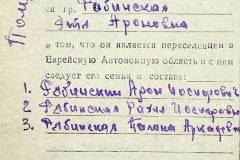 ся гр. Рабинская
Этл Ароновна
в том, что он является переселенцем в
Еврейскую Автономную область и с ним
следует его семья в составе:
1. Рабинский Арон Иосифович
2. Рабинская Рахил Иосифовна
3. Рабинская Полина Аркадьевна